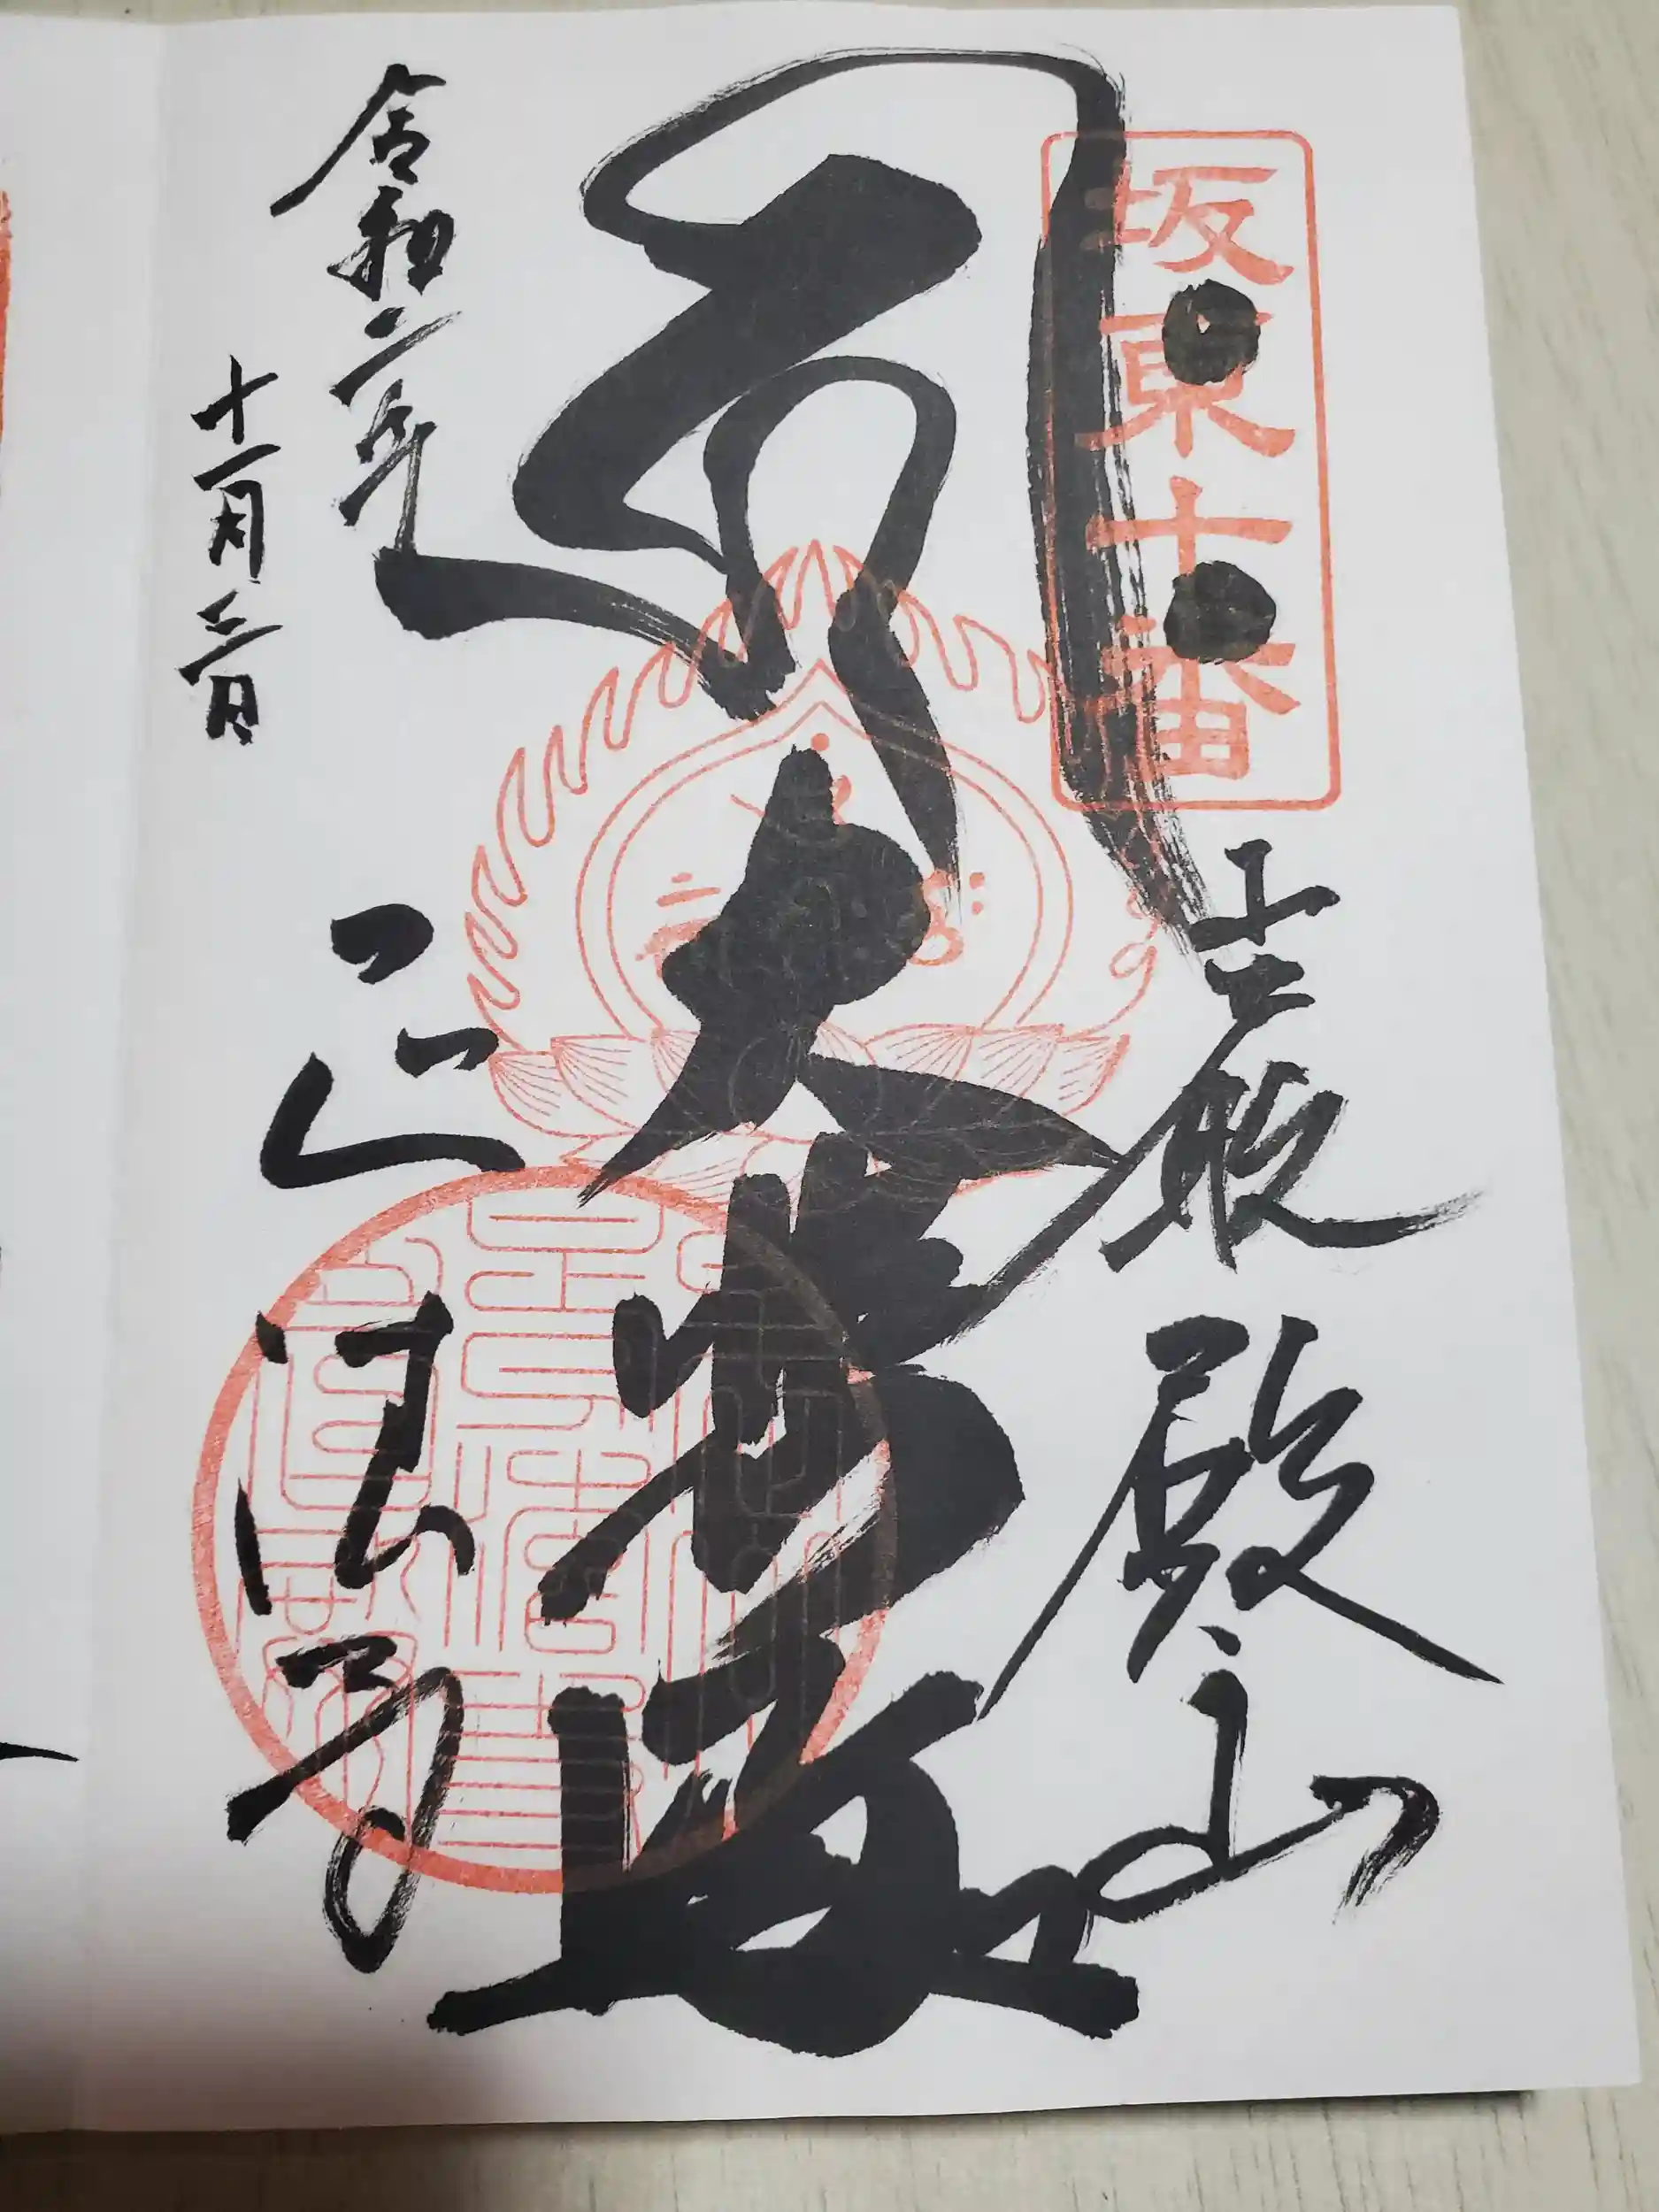 坂東十番
巌殿山
大悲
令和二年
十一月三日
正法寺